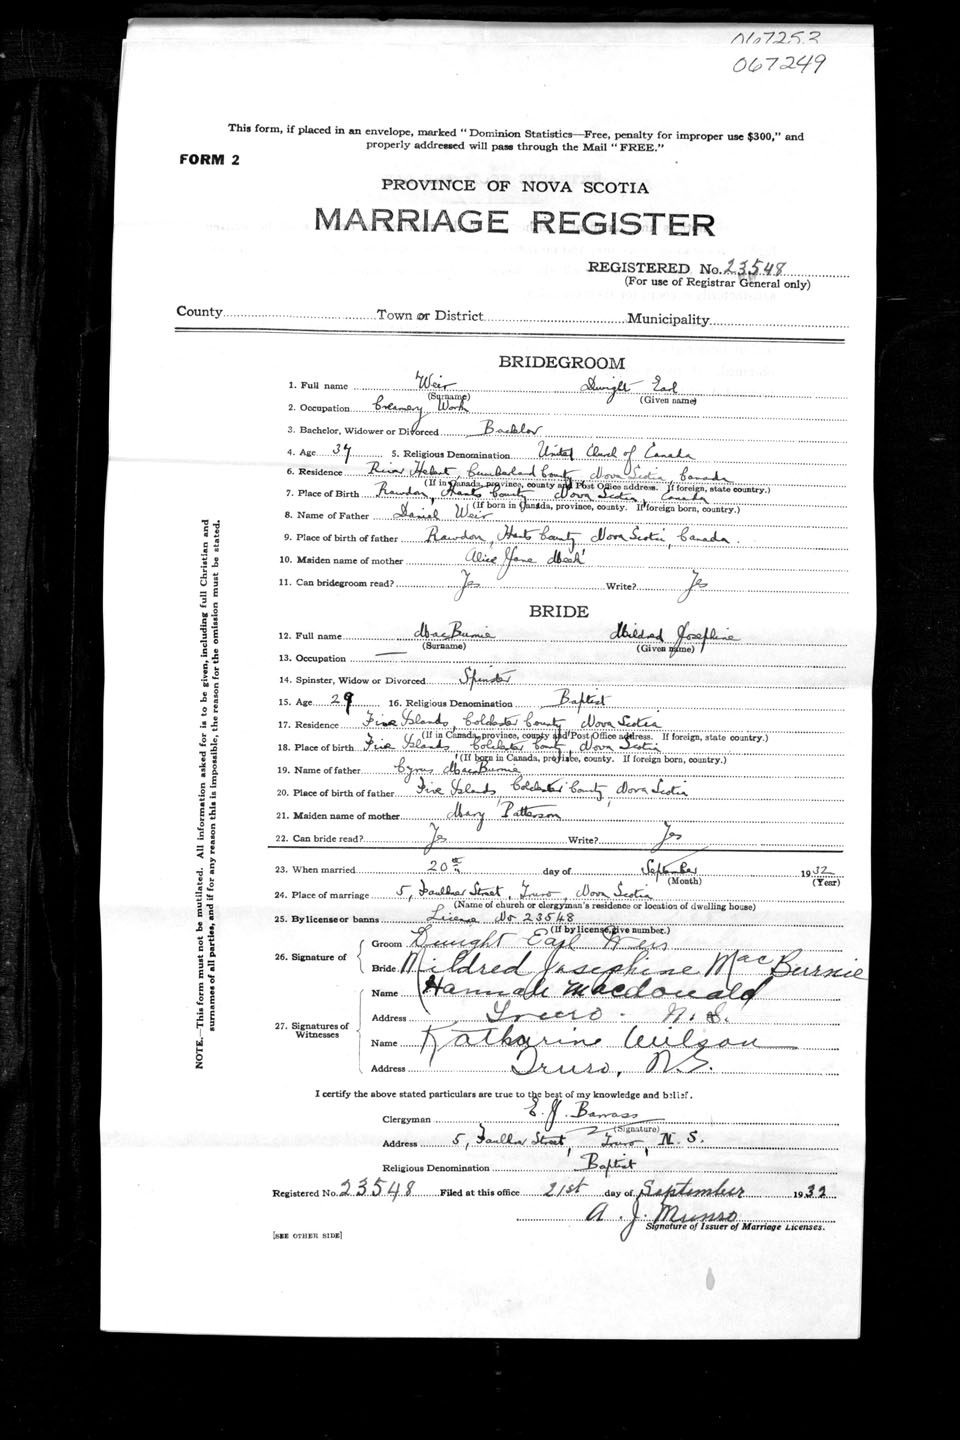 067253
067249
This form, if placed in an envelope, marked "Dominion Statistics—Free, penalty for improper use $300," and
properly addressed will pass through the Mail "FREE."
FORM 2
PROVINCE OF NOVA SCOTIA
MARRIAGE REGISTER
REGISTERED No. 23548
(For use of Registrar General only)
County Town or District Municipality
BRIDEGROOM
1. Full name Weir Dwight Earl
(Surname) (Given name)
2. Occupation Creamery Work
3. Bachelor, Widower or Divorced Bachelor
4. Age 34 5. Religious Denomination United Church of Canada
6. Residence River Hebert, Cumberland County, Nova Scotia, Canada
(If in Canada, province, county and Post Office address. If foreign, state country.)
7. Place of Birth Rawdon, Hants County Nova Scotia, Canada
(If born in Canada, province, county. If foreign born, country.)
8. Name of Father Daniel Weir
9. Place of birth of father Rawdon, Hants County Nova Scotia, Canada
10. Maiden name of mother Alice Jane
11. Can bridegroom read? Yes Write? Yes
BRIDE
12. Full name MacBurnie Mildred Josephine
(Surname) (Given name)
13. Occupation —
14. Spinster, Widow or Divorced Spinster
15. Age 29 16. Religious Denomination Baptist
17. Residence Five Islands, Colchester County, Nova Scotia
(If in Canada, province, county and Post Office address. If foreign, state country.)
18. Place of birth Five Islands Colchester County, Nova Scotia
(If born in Canada, province, county. If foreign born, country.)
19. Name of father Cyrus MacBurnie
20. Place of birth of father Five Islands, Colchester County, Nova Scotia
21. Maiden name of mother Mary Patterson
22. Can bride read? Yes Write? Yes
23. When married 20th day of September 1932
(Month) (Year)
24. Place of marriage 5, Faulkner Street, Truro, Nova Scotia
(Name of church or clergyman's residence or location of dwelling house)
25. By license or banns License No 23548
(If by license, give number.)
26. Signature of Groom Dwight Earl Weir
Bride Mildred Josephine MacBurnie
27. Signatures of Witnesses Name Hannah Macdonald
Address Truro - N.S.
Name Katharine Wilson
Address Truro, N.S.
I certify the above stated particulars are true to the best of my knowledge and belief.
Clergyman E. J. Barrass
(Signature)
Address 5, Faulkner Street, Truro N.S.
Religious Denomination Baptist
Registered No. 23548 Filed at this office 21st day of September 1932
A. J. Munro
Signature of Issuer of Marriage Licenses.
[SEE OTHER SIDE]
NOTE.—This form must not be mutilated. All information asked for is to be given, including full Christian and
surnames of all parties, and if for any reason this is impossible, the reason for the omission must be stated.